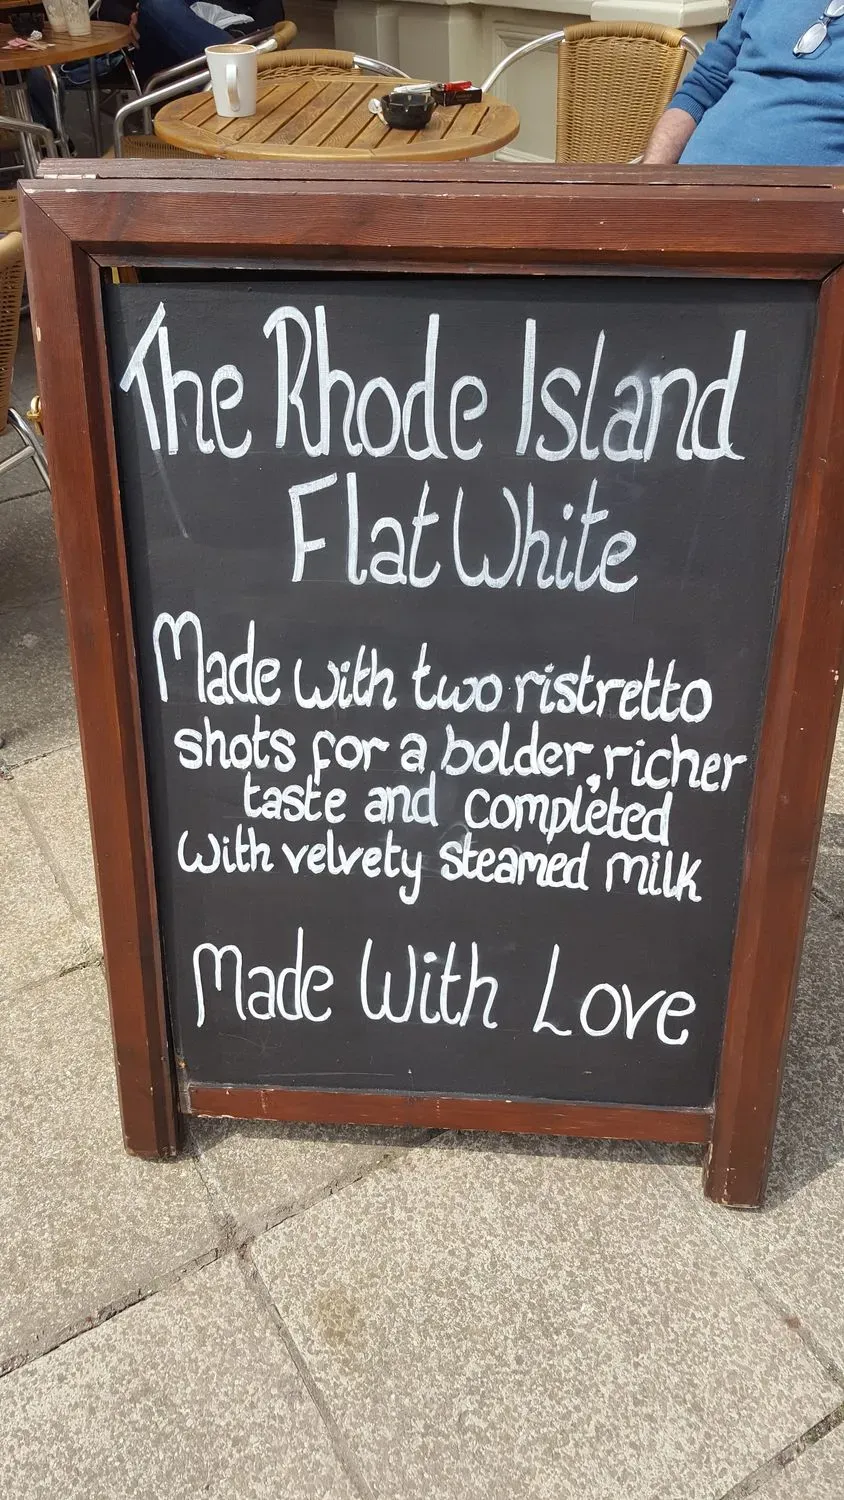 The Rhode Island
Flat White
Made with two ristretto
shots for a bolder, richer
taste and completed
with velvety steamed milk
Made With Love